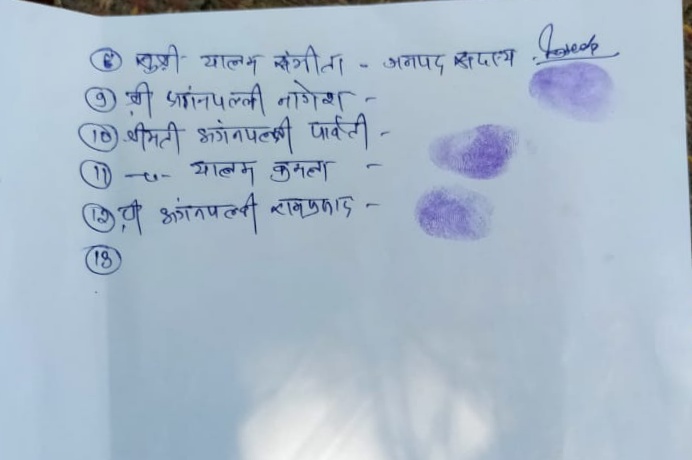 ⑧ सुश्री यालम संगीता - जनपद सदस्य
⑨ श्री अगंनपल्ली नागेश -
⑩ श्रीमती अगंनपल्ली पार्वती -
⑪ -〃- यालम कमला -
⑫ श्री अगंनपल्ली रामप्रसाद -
⑬